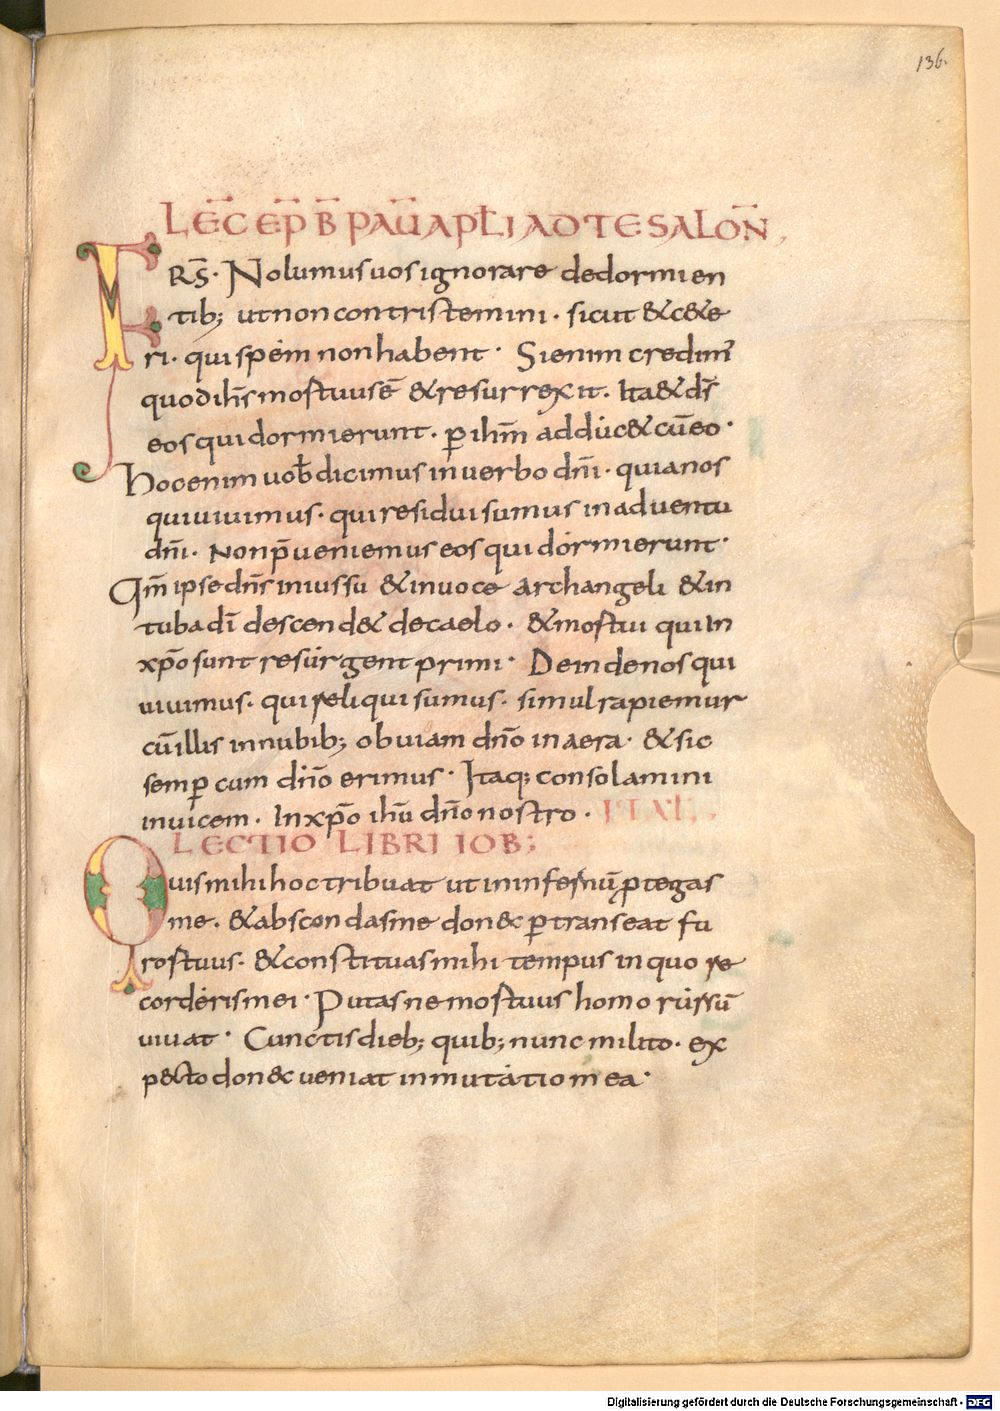 136.
LEC̄ EP̄ B̄ PAŪ APŁI AD TESALON̄
FRS̄· Nolumus uos ignorare de dormien
tib; ut non contristemini· sicut & c&e
ri· qui spem non habent· Si enim credim̄
quod ih̄s mortuus ē & resurrexit· Ita & d̄s
eos qui dormierunt· ꝑ ih̄m adduc& cū eo·
Hoc enim uob̄ dicimus in uerbo dn̄i· quia nos
qui uiuimus· qui residui sumus in aduentu
dn̄i· Non p̄ueniemus eos qui dormierunt·
Qm̄ ipse dn̄s in iussu & in uoce archangeli & in
tuba dī descend& de caelo· & mortui qui in
xp̄o sunt resurgent primi· Dein de nos qui
uiuimus· qui reliqui sumus· simul rapiemur
cū illis in nubib; obuiam dn̄o in aera· & sic
semꝑ cum dn̄o erimus· Itaq; consolamini
inuicem· In xp̄o ih̄u dn̄o nostro· IT AL̄
LECTIO LIBRI IOB;
Quis mihi hoc tribuat ut in infernū ꝓtegas
me· & abscondas me donec ꝑtranseat fu
ror tuus· & constituas mihi tempus in quo re
corderis mei· Putasne mortuus homo rursū
uiuat· Cunctis dieb; quib; nunc milito· ex
pecto donec ueniat inmutatio mea·
Digitalisierung gefördert durch die Deutsche Forschungsgemeinschaft - DFG